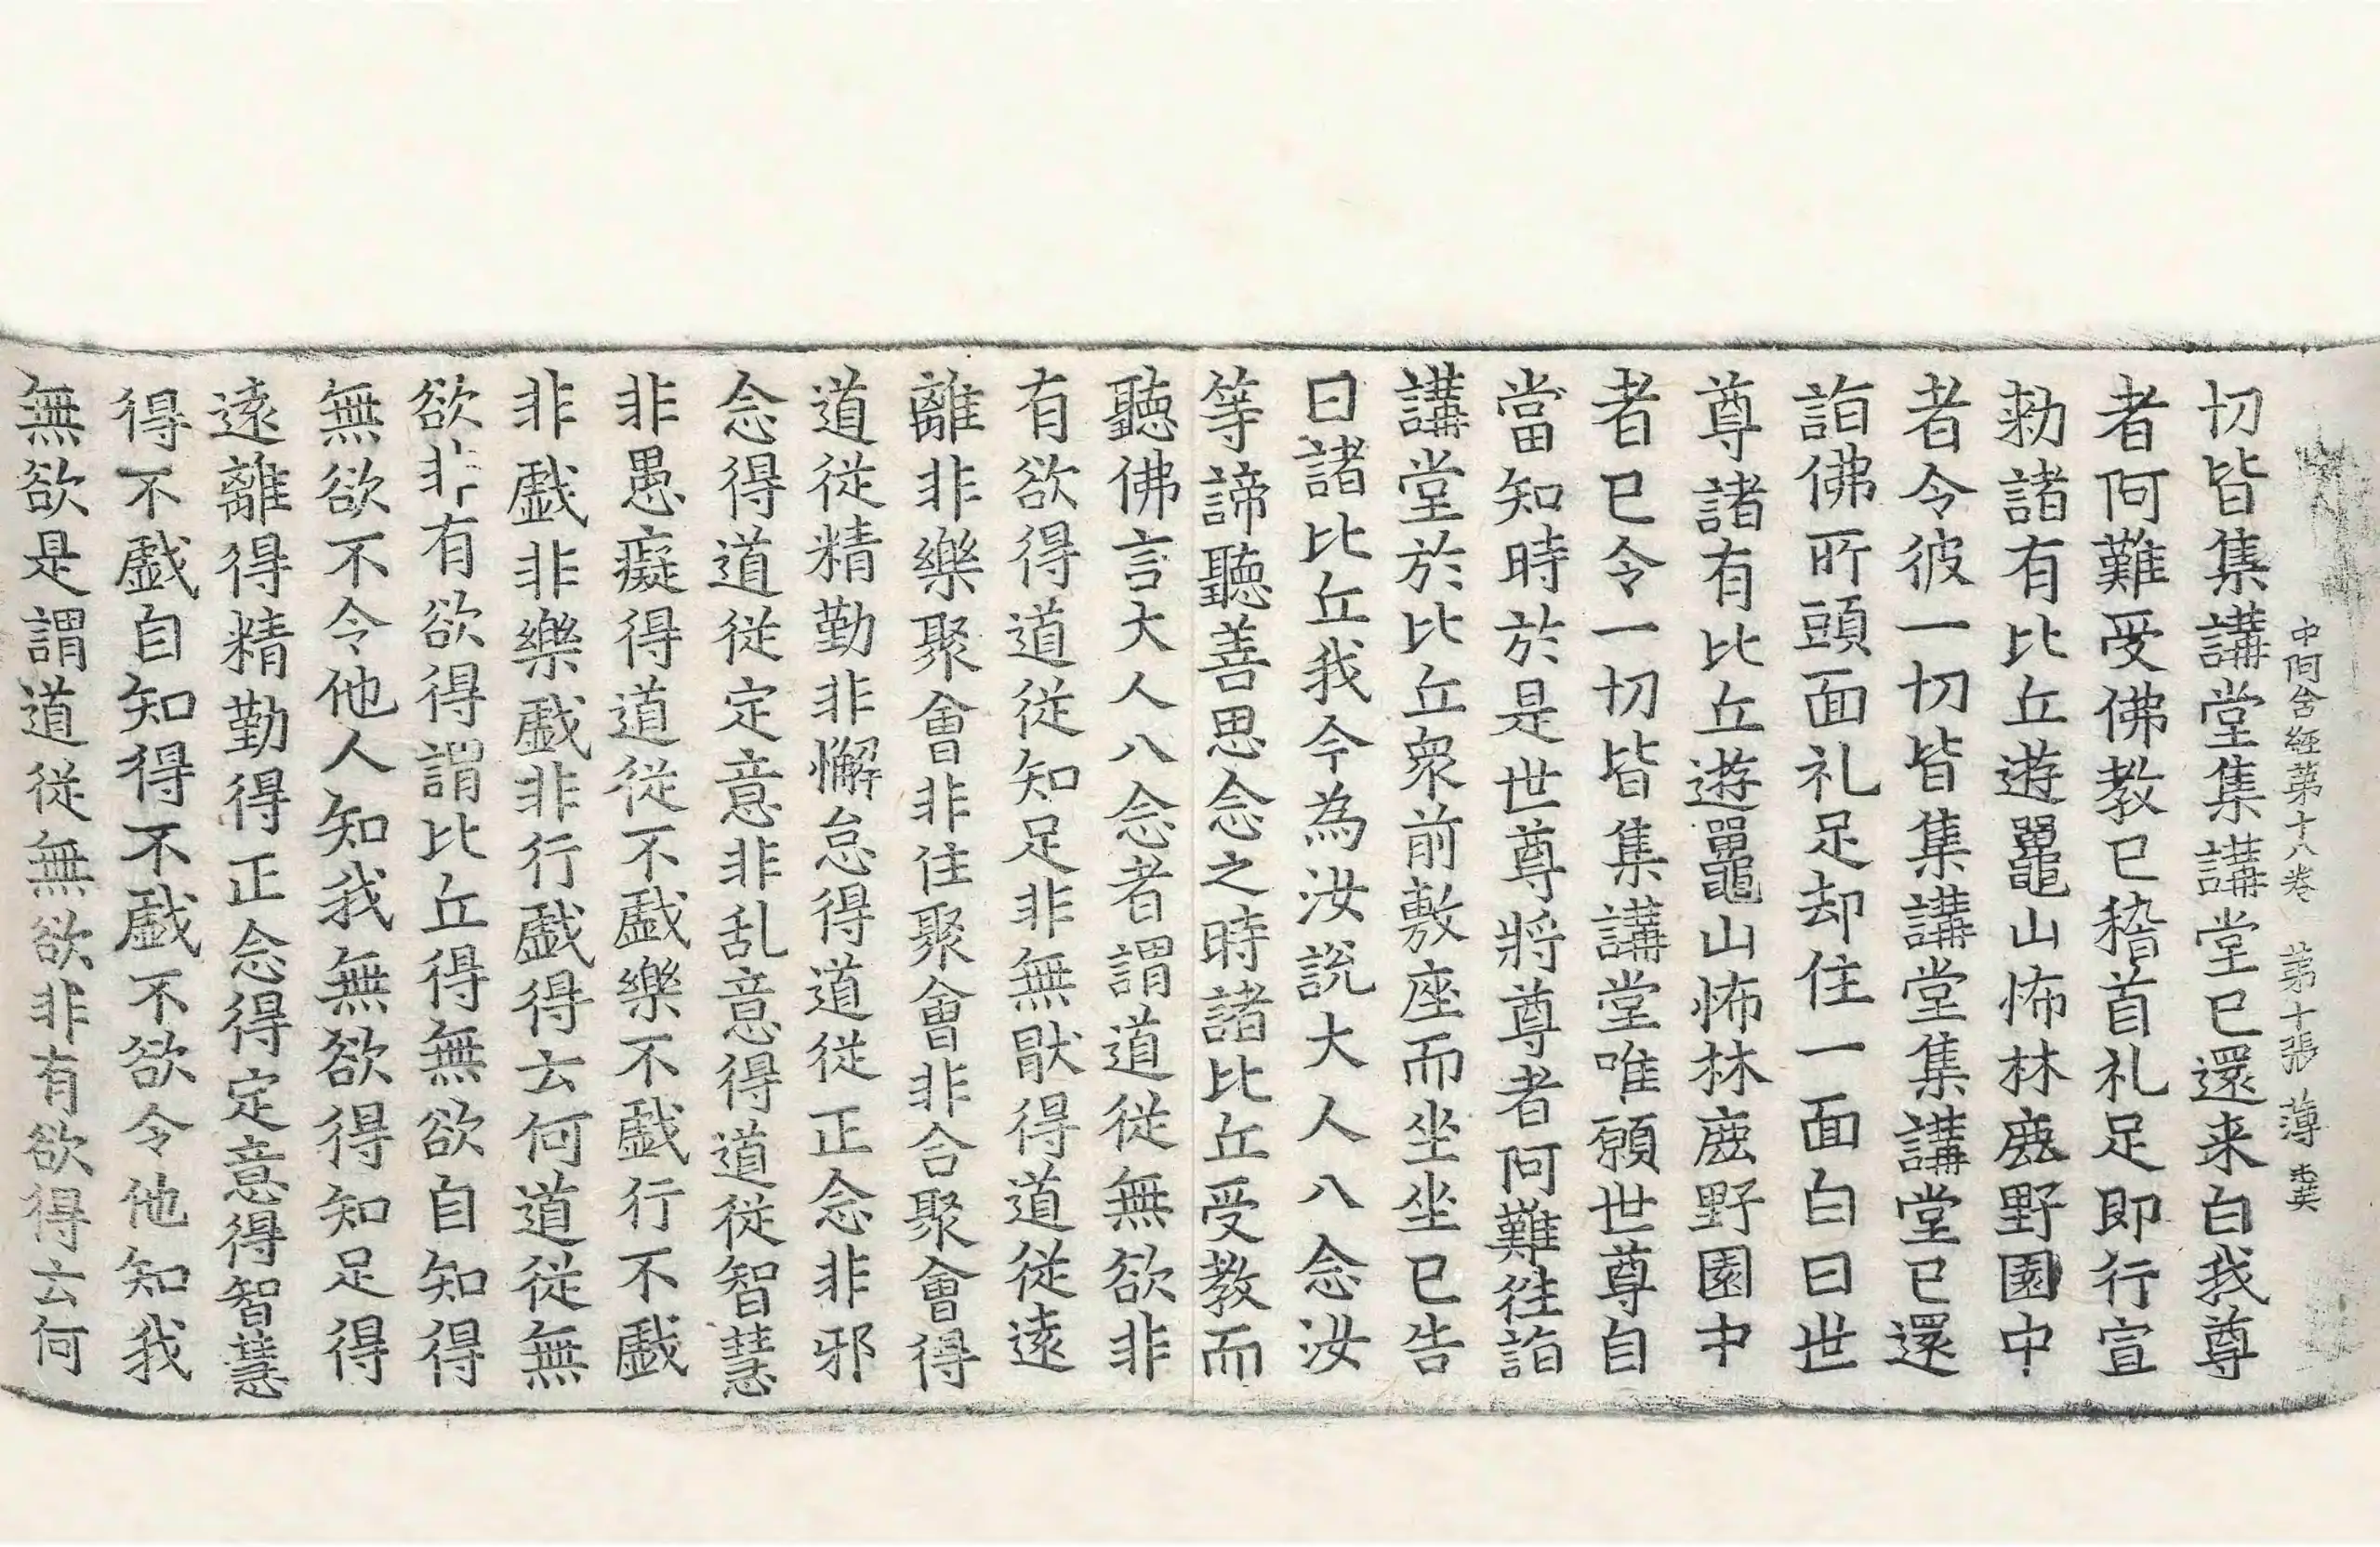 中阿含經第十八卷 第十張 薄
切皆集講堂集講堂已還来白我尊
者阿難受佛教已稽首礼足即行宣
勑諸有比丘遊鼉山怖林鹿野園中
者令彼一切皆集講堂集講堂已還
詣佛所頭面礼足却住一面白曰世
尊諸有比丘遊鼉山怖林鹿野園中
者已令一切皆集講堂唯願世尊自
當知時於是世尊將尊者阿難往詣
講堂於比丘衆前敷座而坐坐已告
曰諸比丘我今為汝說大人八念汝
等諦聽善思念之時諸比丘受教而
聽佛言大人八念者謂道從無欲非
有欲得道從知足非無猒得道從遠
離非樂聚會非住聚會非合聚會得
道從精勤非懈怠得道從正念非邪
念得道從定意非乱意得道從智慧
非愚癡得道從不戱樂不戱行不戱
非戱非樂戱非行戱得云何道從無
欲非有欲得謂比丘得無欲自知得
無欲不令他人知我無欲得知足得
遠離得精勤得正念得定意得智慧
得不戱自知得不戱不欲令他知我
無欲是謂道從無欲非有欲得云何